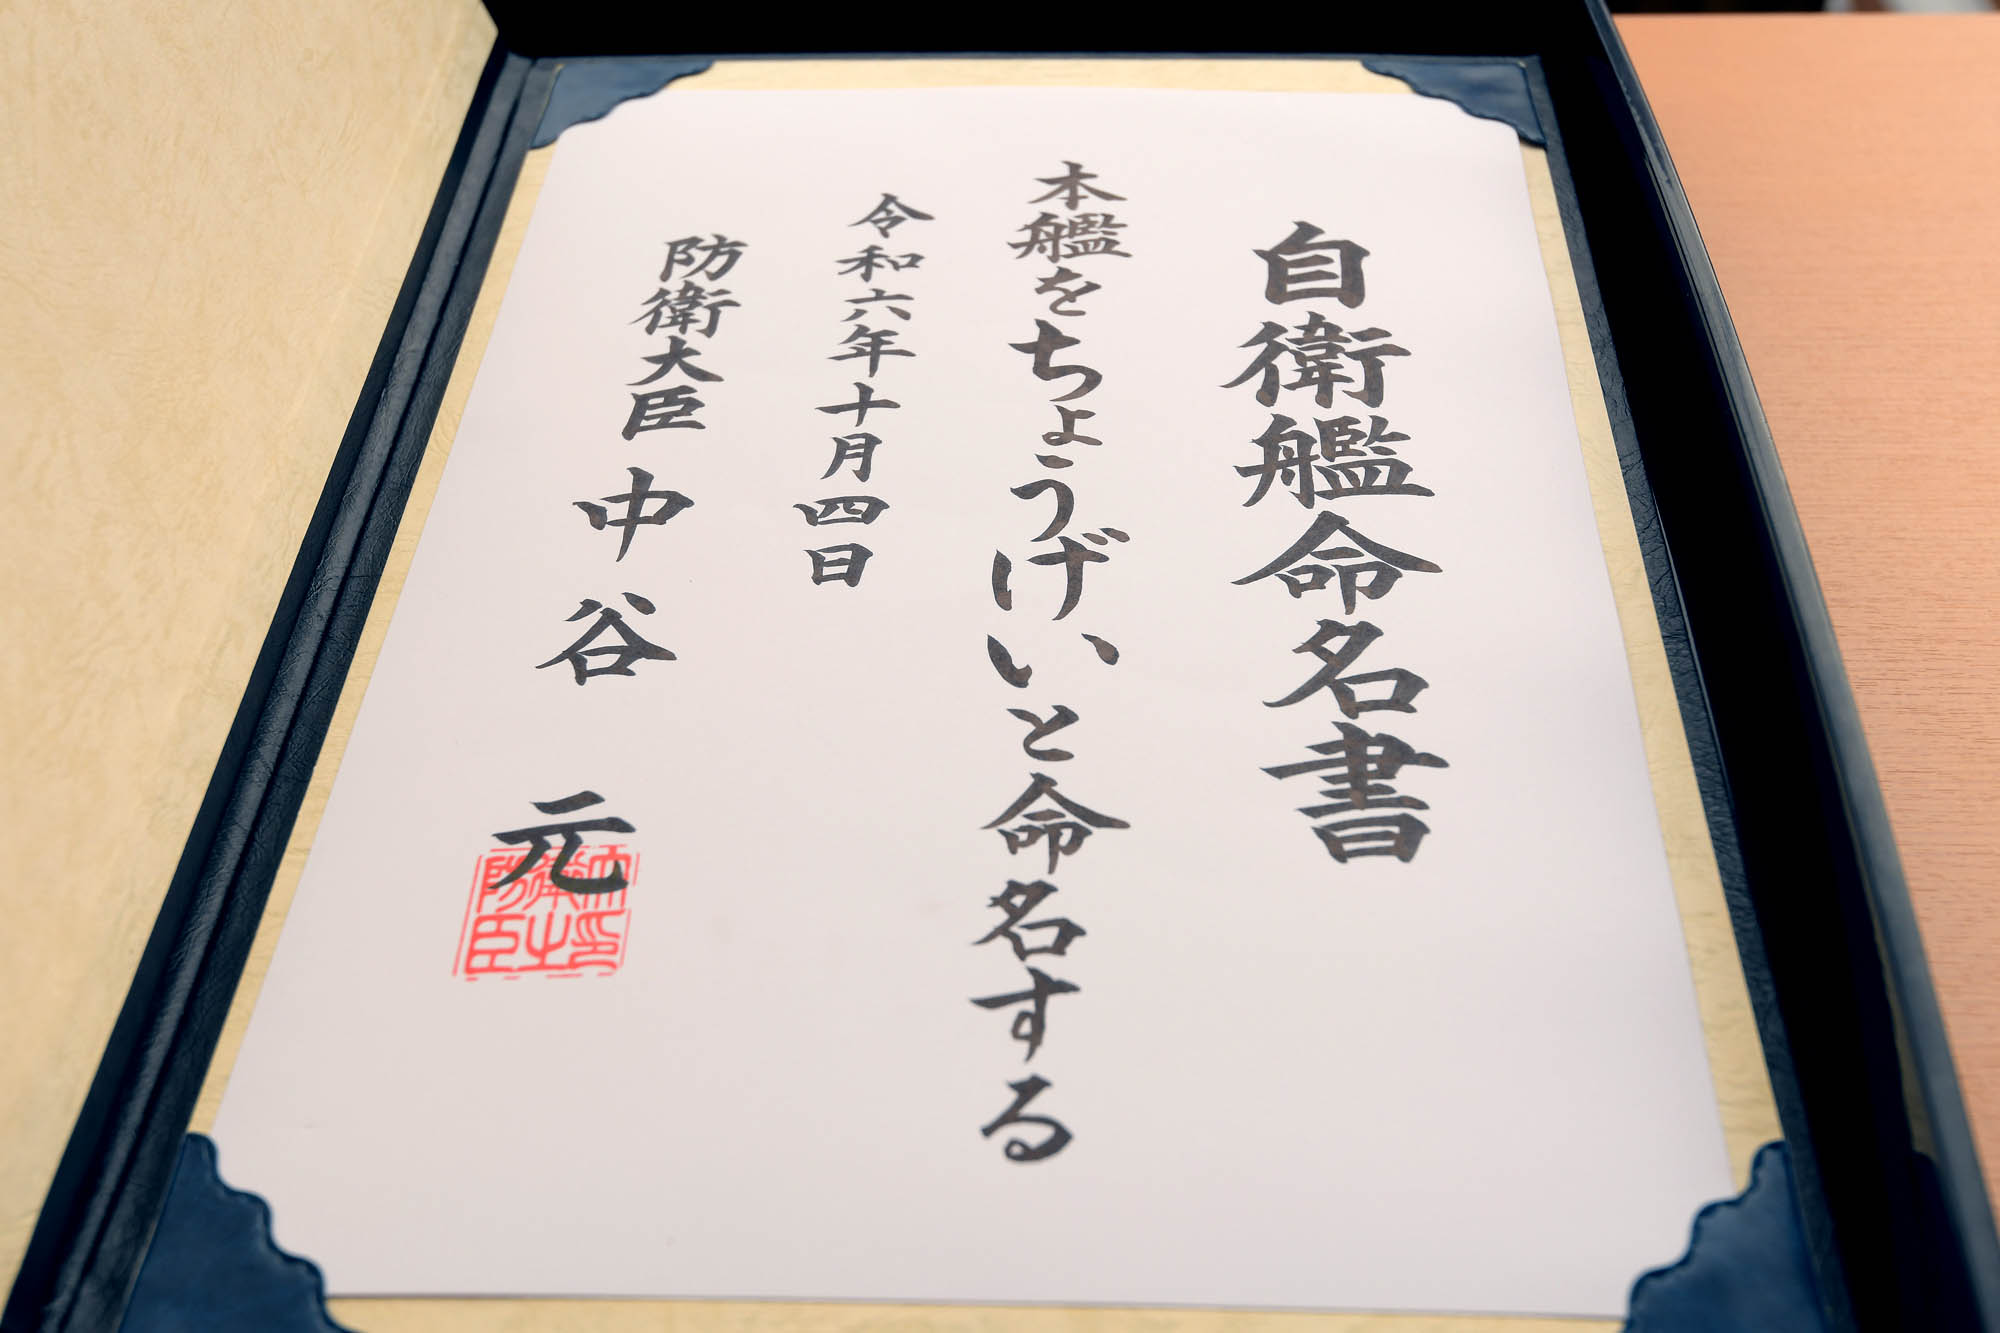 自衛艦命名書
本艦をちょうげいと命名する
令和六年十月四日
防衛大臣 中谷 元
防衛大臣之印